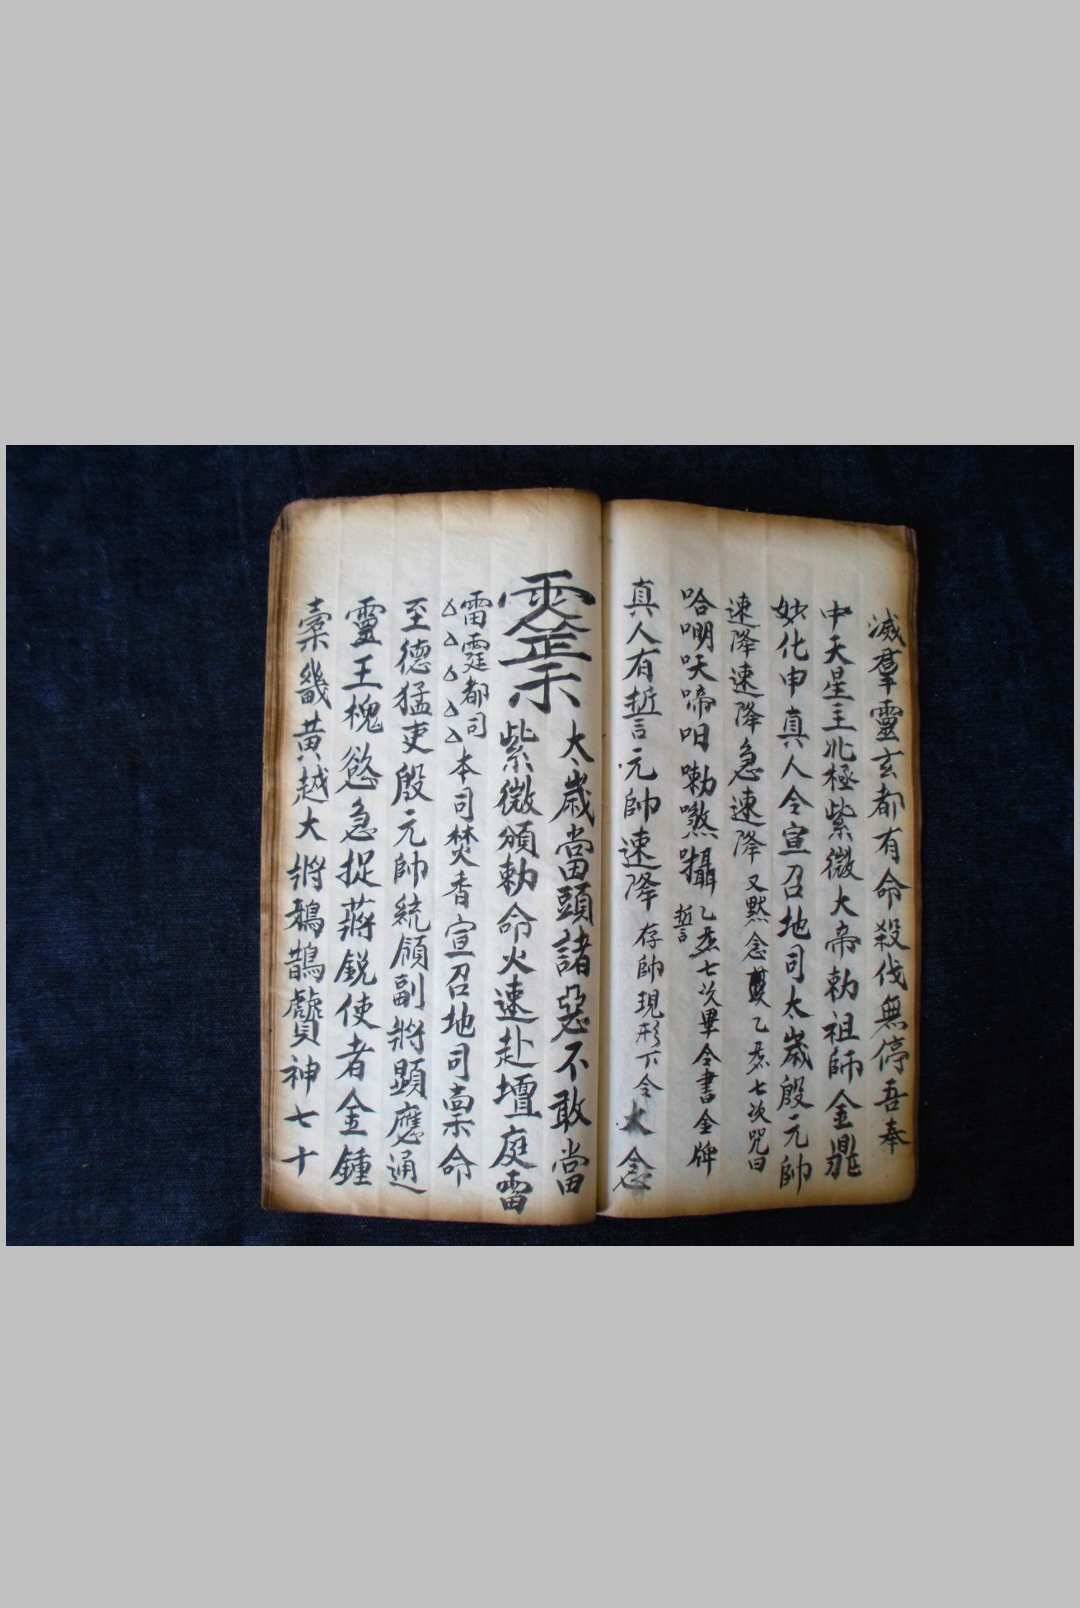 滅羣靈玄都有命殺伐無停吾奉
中天星主北極紫微大帝勅祖師金鼎
妙化申真人令宣召地司太歲殷元帥
速降速降急速降又黙念 乙炁七次咒曰
哈𠵇吠啼呾嘞喣囁乙炁七次畢令書金牌
誓
真人有誓言元帥速降存帥現形下令大念
太歲當頭諸惡不敢當
紫微頒勅命火速赴壇庭雷
雷霆都司
本司焚香宣召地司稟命
至德猛吏殷元帥統領副將顯應通
靈王槐慾急捉蔣銳使者金鍾
藁畿黃越大將鵝鵲 神七十